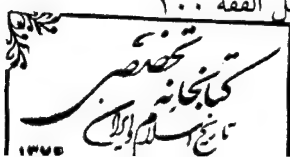 ل الفقه ١٠٠
کتابخانه تخصصی
تاریخ اسلام و ایران
۱۳۷۴